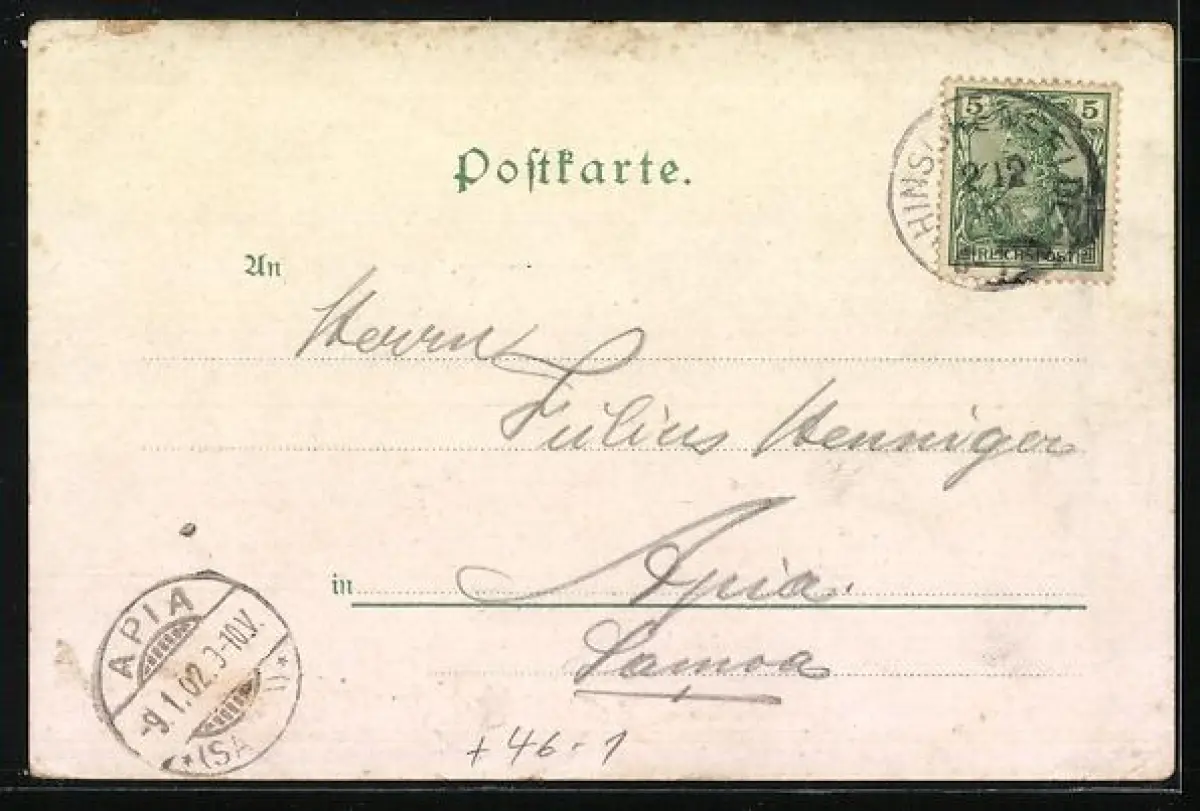 5 5
2/12
REICHSPOST
Postkarte.
An
Herrn
Julius Henniger
in Apia.
Samoa
APIA
-9.1.02.9-10.V.
*(SA
+ 46-1